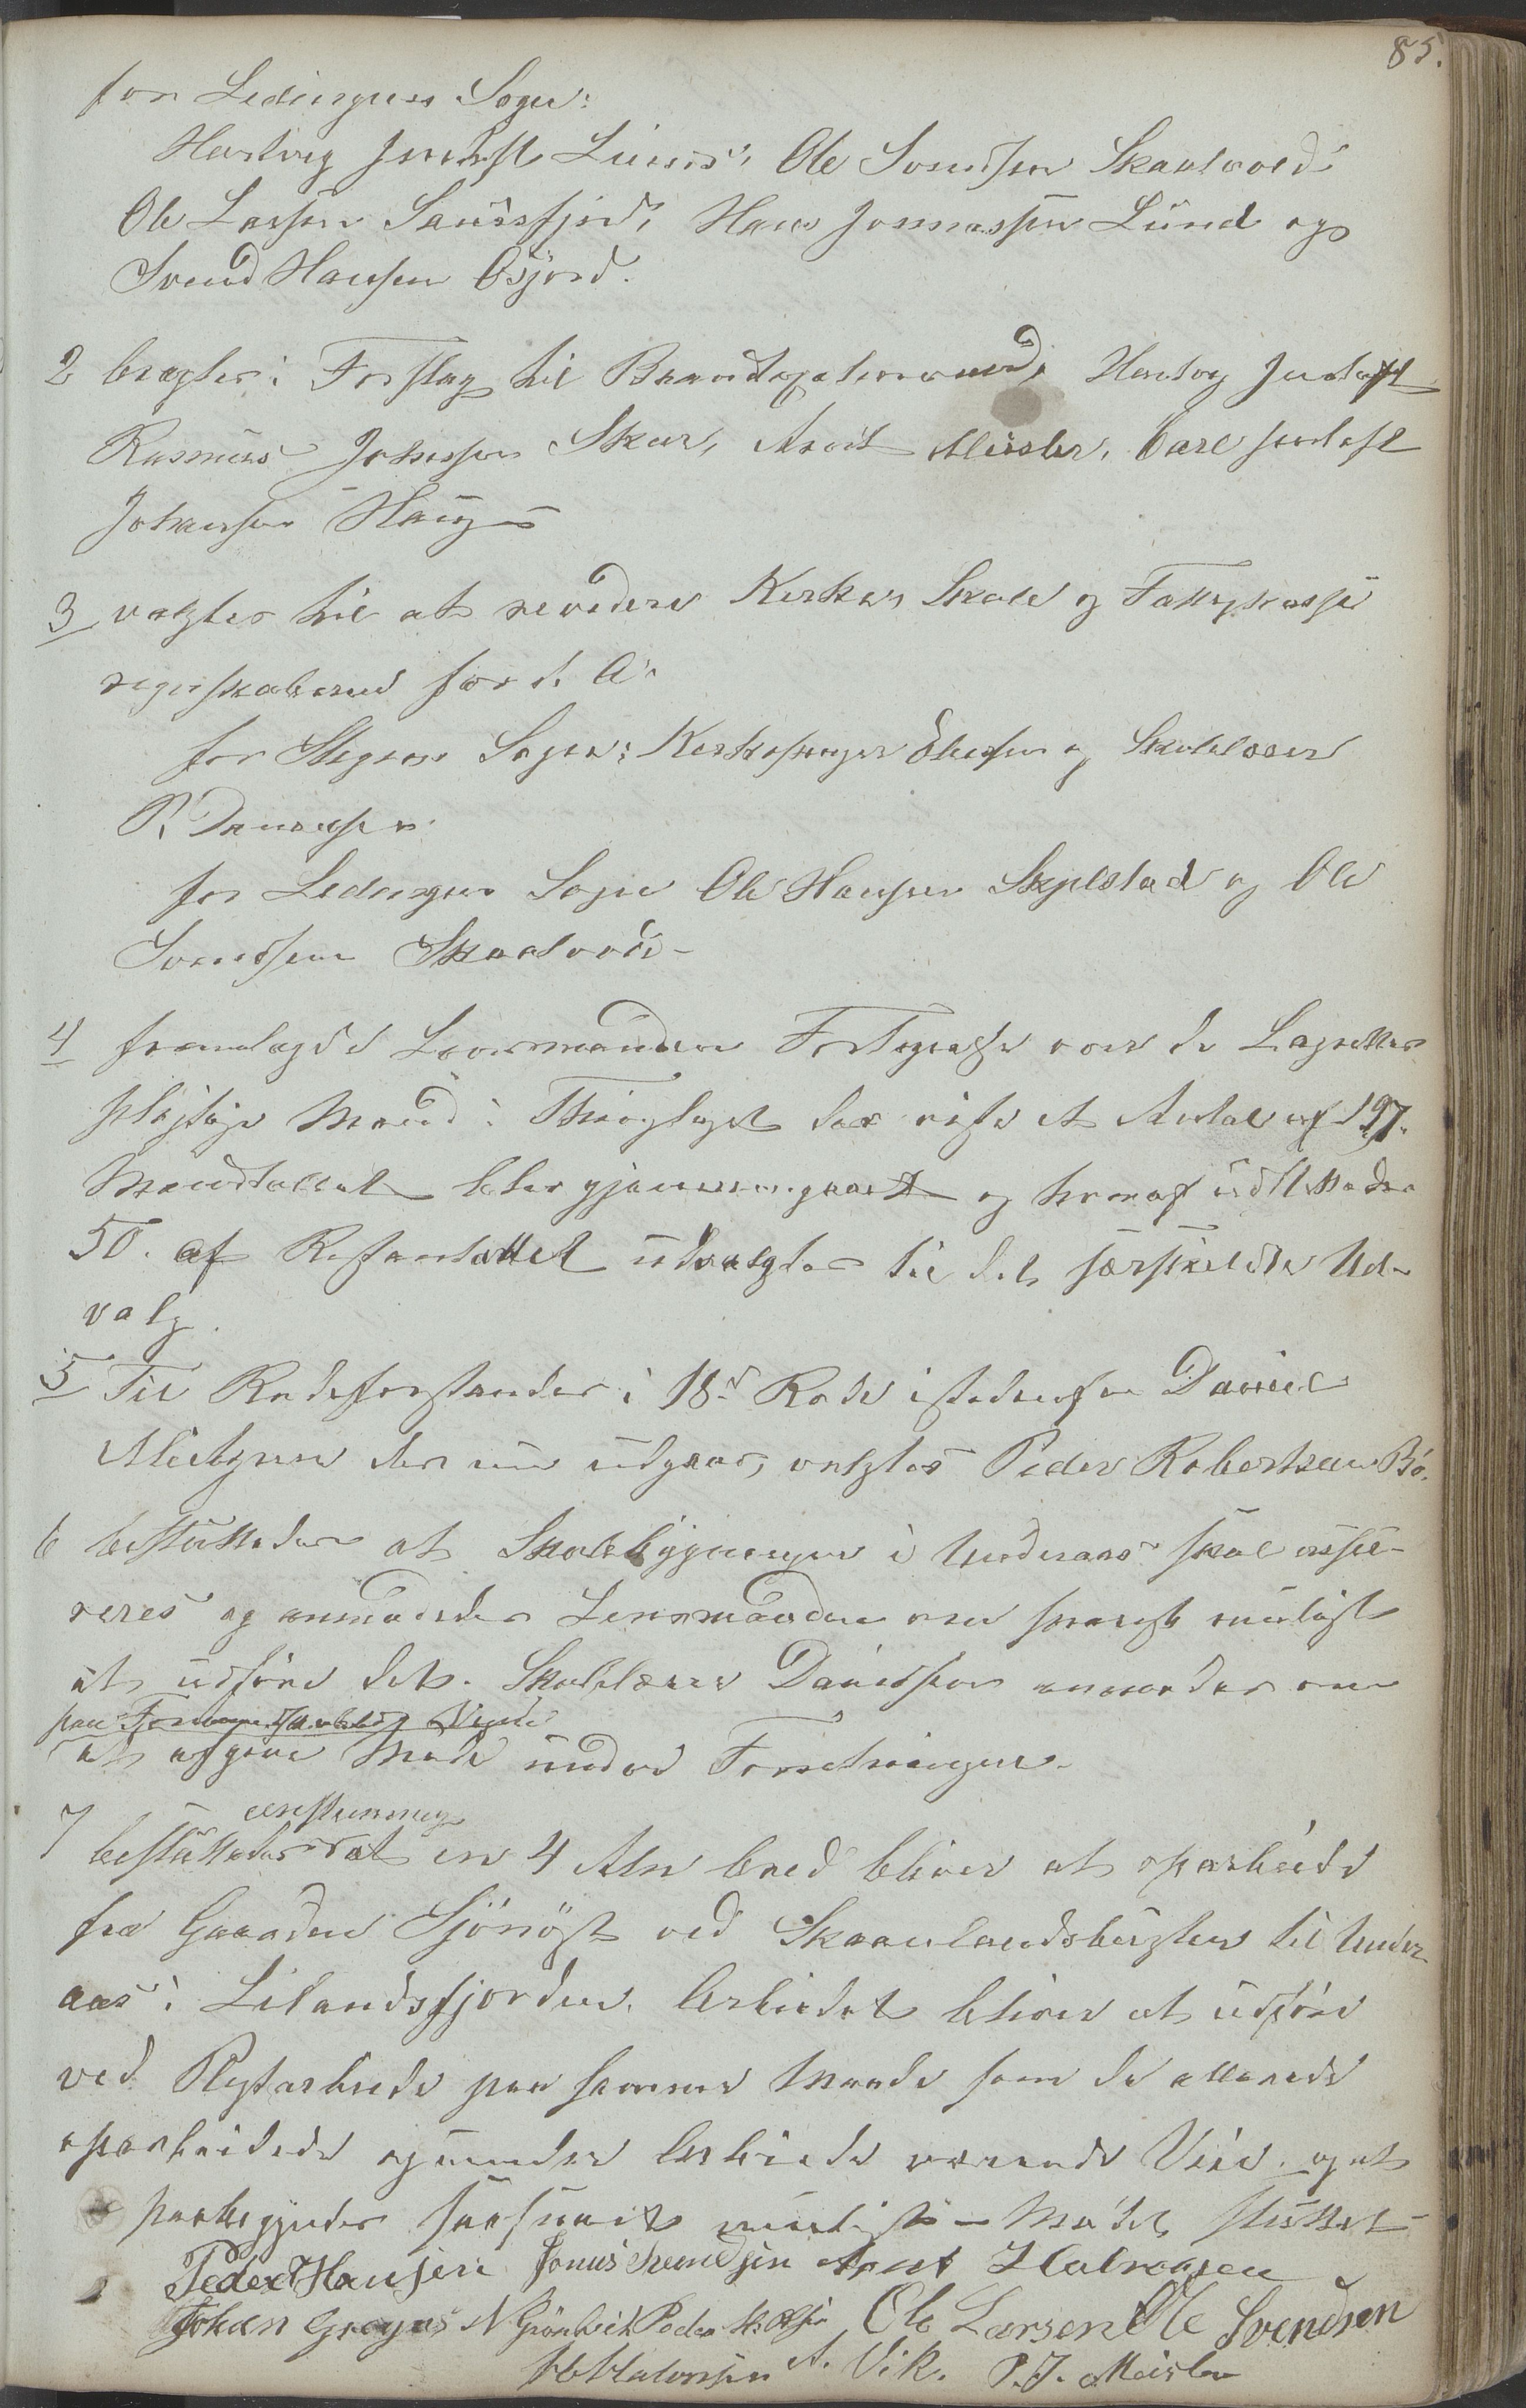 85.
for Ledingens Sogn:
Hartvig Jentoft Liines, Ole Svendsen Skaalvold
Ole Larsen Sandsfjord, Hans Jonnassen Lund og
Svend Hansen Osfjord.
2 bragtes i Forslag til Brandtaxtmænd, Hartvig Jentoft
Rasmus Johnsen Skar, Arnt Meisler, Carl Jentoft
Johansen Haug
3 valgtes til at revidere Kirkes Skole og Fattigkasse
regnskaberne for d. A.
for Stegens Sogn: Kirkesanger Ellefsen og Skolelærer
P. Danielsen
for Ledingens Sogn Ole Hansen Skjelstad og Ole
Svendsen Skaalvold
4 fremlagde Lensmanden Fortegnelse over de Lagrettes
pligtige Mænd i Thinglaget der viste et Antal af 197.
Mandtallet blev gjennemgaaet og heraf udskttedes
50. af Restantallet udvalgtes til det særskildte Ud-
valg.
5 Til Rodeforstander i 18d Rode istedenfor Daniel
der nu udgaar, valgtes Peder Robertsen Bö.
6 besluttedes at Skolebygningen i Underaas skal
reres og anmodedes Lensmanden om snarest muligt
at udföre dets. Skolelærer Danielsen anmodes om
paa
at afgive Möde under Forretningen.
7 eenstemmig
besluttedes at en 4 Alen bred bliver at oparbeide
fra Gaarden Sjönöst ved Skaanlandsbugten til Under
aas i Lilandsfjorden. Arbeidet bliver at udföre
ved Pligtarbeide paa samme Maade som de allerede
oparbeidede og under Arbeide værende Veie. og at
paabegyndes saasnart muligst - Mödet sluttet
Peder Hansen Jonus Svendsen Arnt Halvorsen
Johan Greger N Grönbech Peder Ole Larsen Ole Svendsen
Halvorsen A. Vik. P. J. Meisler